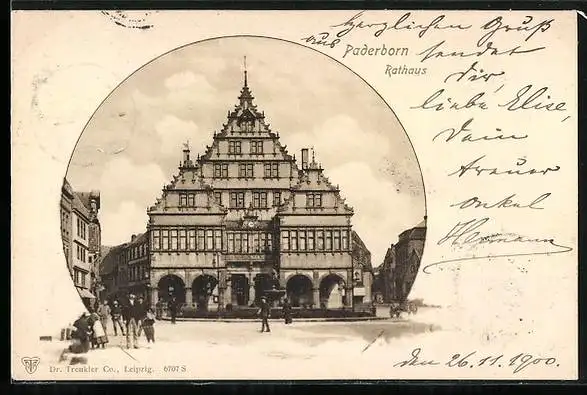 Herzlichen Gruß
aus Paderborn sendet
Rathaus
Dir,
liebe Elise,
Dein
treuer
Onkel
Hermann
den 26.11.1900.
Dr. Trenkler Co., Leipzig. 6707 S